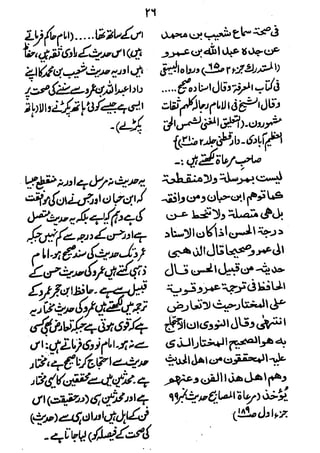 ٢٦
فى صحة سماع شعيب بن محمد
عن جده عبد الله بن عمرو
(المستدرك جزء ٢ ص٦٥) ورواه البيهقى
فى كتاب المعرفة وقال اسناده صحيح....
وقال الشيخ فى الامام رجاله كلهم ثقات
مشهورون۔ (التعليق المغنى لشمس الحق
عظيم آبادى۔ دارقطنى جلد ٢ ص٣١)
صاحب مرعاۃ لکھتے ہیں :۔
ليست بمرسلة ولا منقطعة
كما توهم ابن حبان ومن وافقه
بل هى متصلة ولا تنحط عن
درجة الحسن اذا كان الاسناد
الى عمرو صحيحا قال الذهبى
حديثه من قبيل الحسن قال
الحافظ فى ترجمة عمرو قوية
على المختار حيث لا تعارض
انتهى وقال النووى ان الاحتجاج
به هو الصحيح المختار الذى
عليه المحققون من اهل الحديث
وهم اهل هذا الفن وعنهم
يؤخذ (مرعاة المصابيح حديث نمبر ٩٩
جزء اول ص ١٨٩)
اس کے ساتھ تھا..... (امام حاکم فرماتے
ہیں) اس حدیث کے راوی ثقہ ہیں، حفاظ
ہیں اور یہ حدیث شعیب بن محمد کا اپنے
دادا عبد اللہ بن عمرو سے سننے کی صحت پر
ایسی ہے جیسے کوئی ہاتھ پکڑنے والا (ہاتھ
پکڑلے)۔
یہ حدیث نہ مرسل ہے اور نہ منقطع جیسا
کہ ابن حبان اور جس نے ان کی موافقت
کی ہے وہم کیا ہے بلکہ یہ حدیث متصل
ہے اور حسن کے درجہ سے کم نہیں جبکہ
عمرو تک حدیث کی سند صحیح ہو۔ امام
ذہبی کہتے ہیں عمرو کی حدیث حسن کے
قبیل سے ہے۔ حافظ ابن حجر عمرو کے
ترجمہ میں لکھتے ہیں عمرو کی حدیث مختار یہ
ہے کہ قوی ہوتی ہے جبکہ تعارض بھی کسی
سے نہ ہو۔ امام نووی فرماتے ہیں : اس
حدیث سے احتجاج کرنا صحیح ہے، مختار
ہے۔ محدثین میں سے محققین کا یہی مختار
ہے اور محدثین ہی (درحقیقت) اس
فن کے اہل ہیں اور ان ہی سے (حدیث)
کی صحت کے فیصلہ کو) لیا جاتا ہے۔